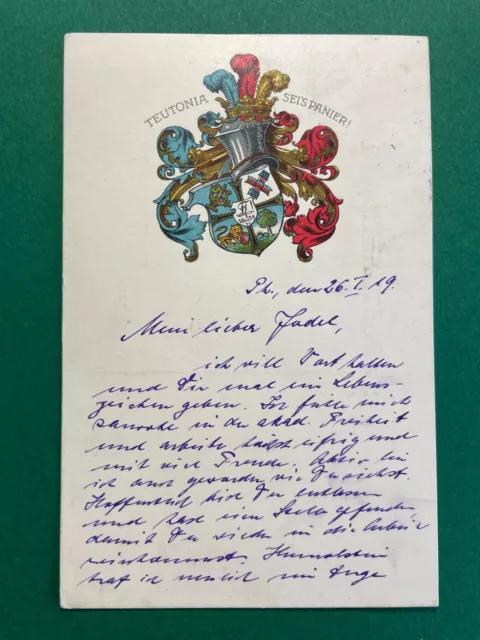 TEUTONIA SEI'S PANIER!
den 26. I. 19.
Mein lieber Jodel,
ich will Wort halten
und Dir mal ein Lebens-
zeichen geben. Ich fühle mich
in der akad. Freiheit
und arbeite eifrig und
mit viel Freude. Aktiv bin
ich auch geworden wie Du siehst.
Hoffentlich bist Du entlassen
und hast eine Stelle gefunden
damit Du wieder in die Arbeit
reinkommst.
traf ich neulich im Zuge